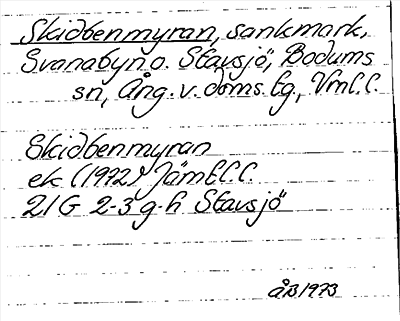 Skidbenmyran, sankmark,
Svanabyn o. Stavsjö, Bodums
sn, Ång. v. doms. tg., Vml. l.
Skidbenmyran
ek (1972) Jämtl. l.
21G 2-3 g-h Stavsjö
ÅB 1973